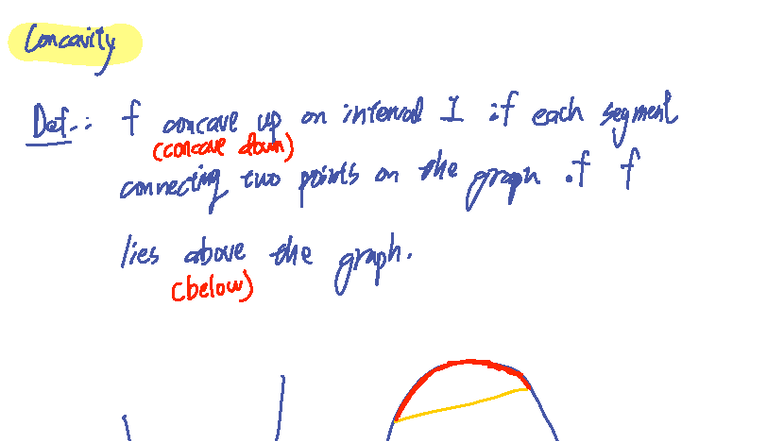 Concavity
Def.: f concave up on interval I if each segment
(concave down)
connecting two points on the graph of f
lies above the graph.
(below)